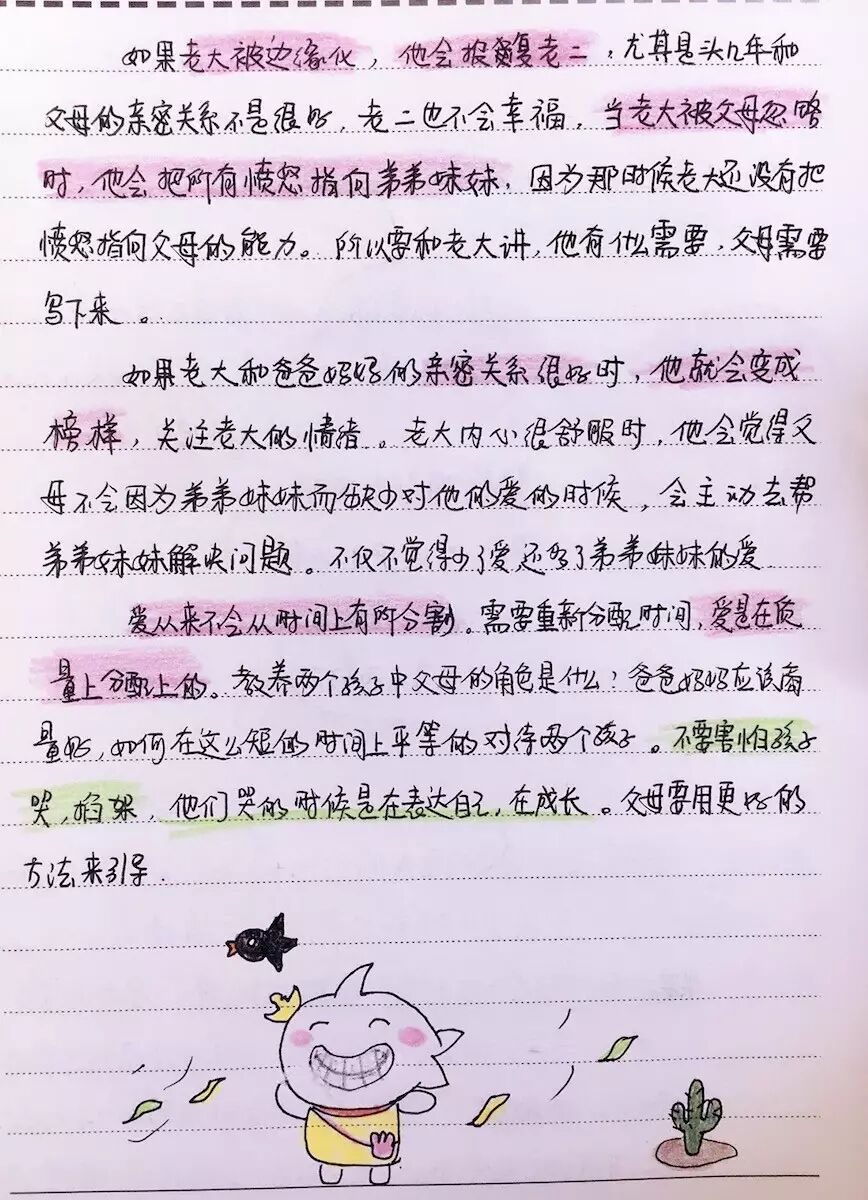 如果老大被边缘化，他会报复老二，尤其是头几年和
父母的亲密关系不是很好，老二也不会幸福，当老大被父母忽略
时，他会把所有愤怒指向弟弟妹妹，因为那时候老大还没有把
愤怒指向父母的能力。所以要和老大讲，他有什么需要，父母需要
写下来。
如果老大和爸爸妈妈的亲密关系很好时，他就会变成
榜样，关注老大的情绪。老大内心很舒服时，他会觉得父
母不会因为弟弟妹妹而缺少对他的爱的时候，会主动去帮
弟弟妹妹解决问题。不仅不觉得少了爱，还多了弟弟妹妹的爱
爱从来不会从时间上有所分割。需要重新分配时间，爱是在质
量上分配上的。教养两个孩子中父母的角色是什么？爸爸妈妈应该商
量好，如何在这么短的时间上平等的对待两个孩子。不要害怕孩子
哭，掐架，他们哭的时候是在表达自己，在成长。父母要用更好的
方法来引导.